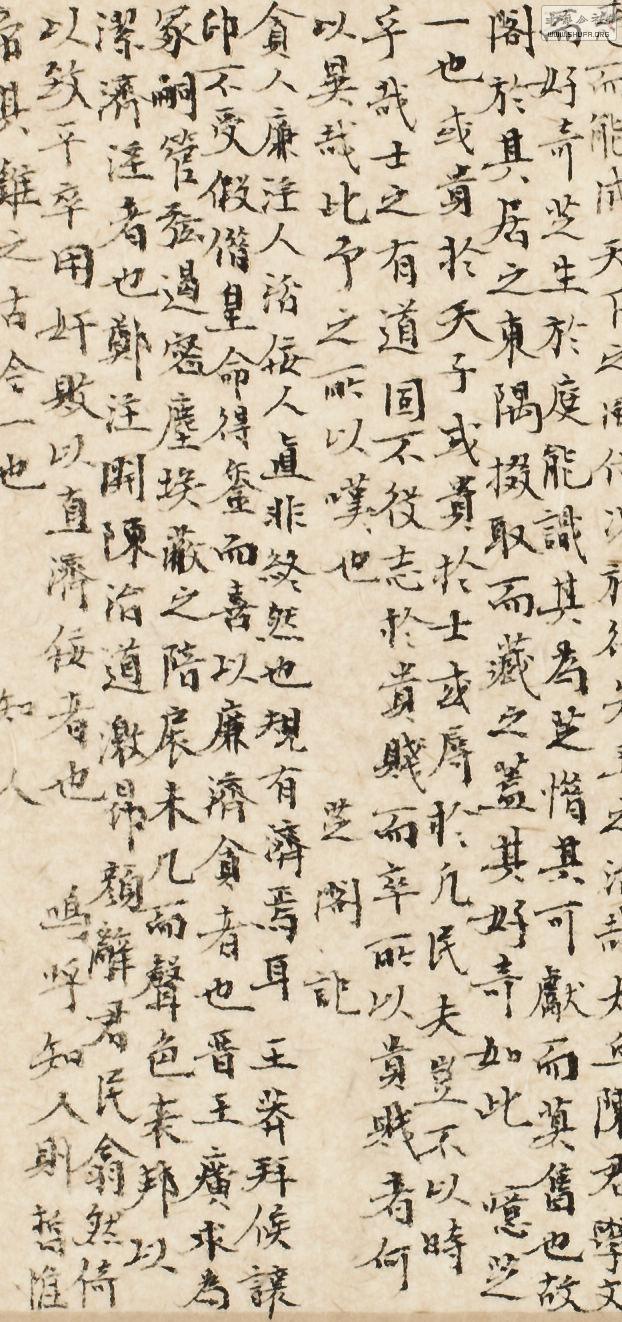 而能成天下之
之治哉太丘陳君學文
而好奇芝生於庭能識其為芝惜其可獻而莫售也故
閣於其居之東隅掇取而藏之蓋其好奇如此 噫芝
一也或貴於天子或貴於士或辱於凡民夫豈不以時
乎哉士之有道固不役志於貴賤而卒所以貴賤者何
以異哉此予之所以嘆也 芝閣記
貪人廉淫人洁佞人直非終然也規有濟焉耳 王莽拜侯讓
印不受假僭皇命得璽而喜以廉濟貪者也晉王廣求為
冢嗣管弦遏密塵埃蔽之陪扆未几而聲色喪邦以
潔濟淫者也鄭注開陳治道激昂顏辭君民翕然倚
以致平卒用奸敗以直濟佞者也 嗚呼知人則哲惟
其難之古今一也 知人
WWW.SHUFA.ORG